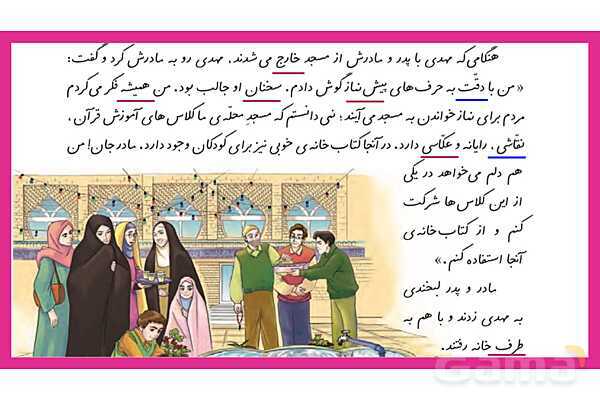 هنگامی‌که مهدی با پدر و مادرش از مسجد خارج می‌شدند، مهدی رو به مادرش کرد و گفت:
« من با دقّت به حرف‌های پیش‌نماز گوش دادم. سخنان او جالب بود. من همیشه فکر می‌کردم
مردم برای نماز خواندن به مسجد می‌آیند؛ نمی‌دانستم که مسجدِ محلّه‌ی ما کلاس‌های آموزش قرآن،
نقّاشی، رایانه و عکّاسی دارد. در آنجا کتاب‌خانه‌ی خوبی نیز برای کودکان وجود دارد. مادر جان! من
هم دلم می‌خواهد در یکی
از این کلاس‌ها شرکت
کنم و از کتاب‌خانه‌ی
آنجا استفاده کنم.»
مادر و پدر لبخندی
به مهدی زدند و با هم به
طرف خانه رفتند.
Gama